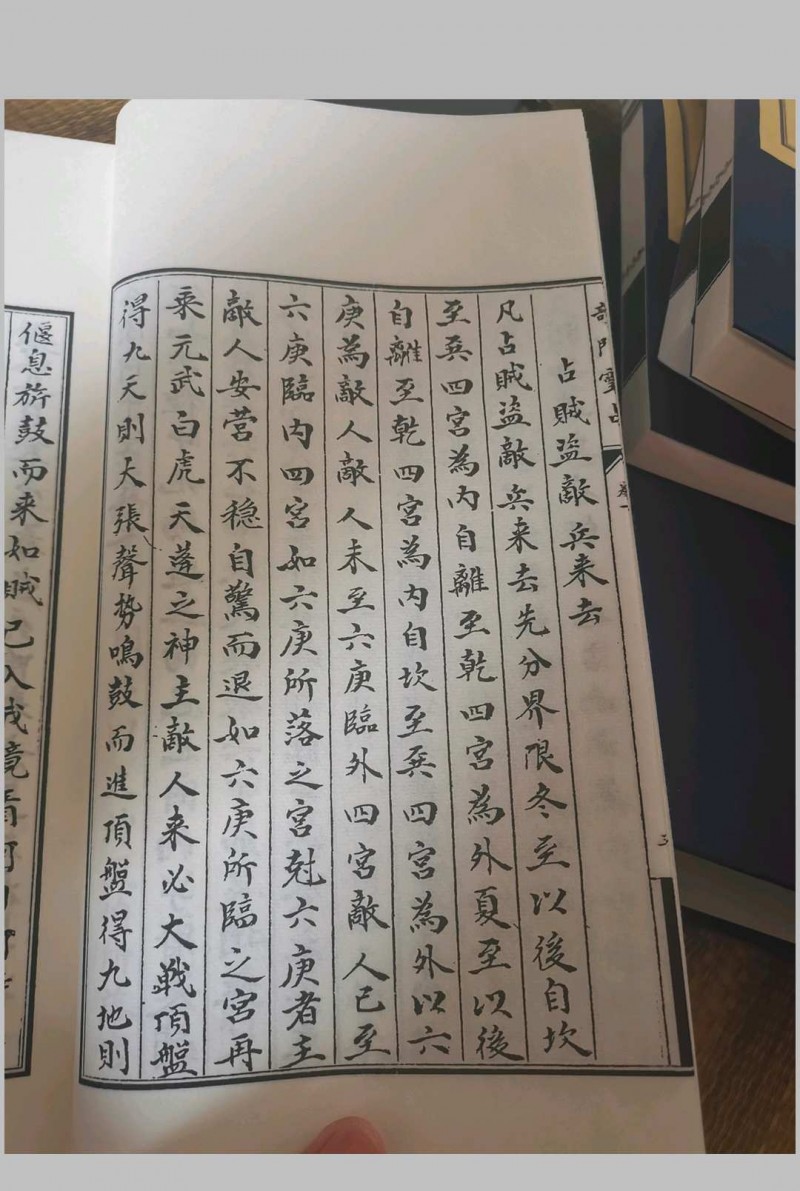 奇門靈占
卷一
占賊盜敵兵来去
凡占賊盜敵兵来去先分界限冬至以後自坎
至巽四宮為內自離至乾四宮為外夏至以後
自離至乾四宮為內自坎至巽四宮為外以六
庚為敵人敵人未至六庚臨外四宮敵人已至
六庚臨內四宮如六庚所落之宮尅六庚者主
敵人安營不穩自驚而退如六庚所臨之宮再
乘元武白虎天蓬之神主敵人来必大戰頂盤
得九天則大張聲勢鳴鼓而進頂盤得九地則
偃息旂鼓而来如賊已入我境看何